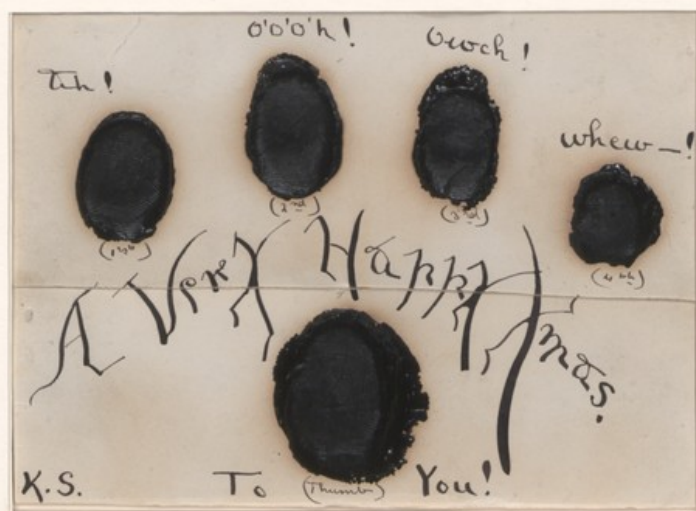 o'o'o'h!
Owch!
Ah!
whew—!
(1st)
(2nd)
(3rd)
(4th)
A Very Happy Xmas.
K.S.
To (Thumb) You!